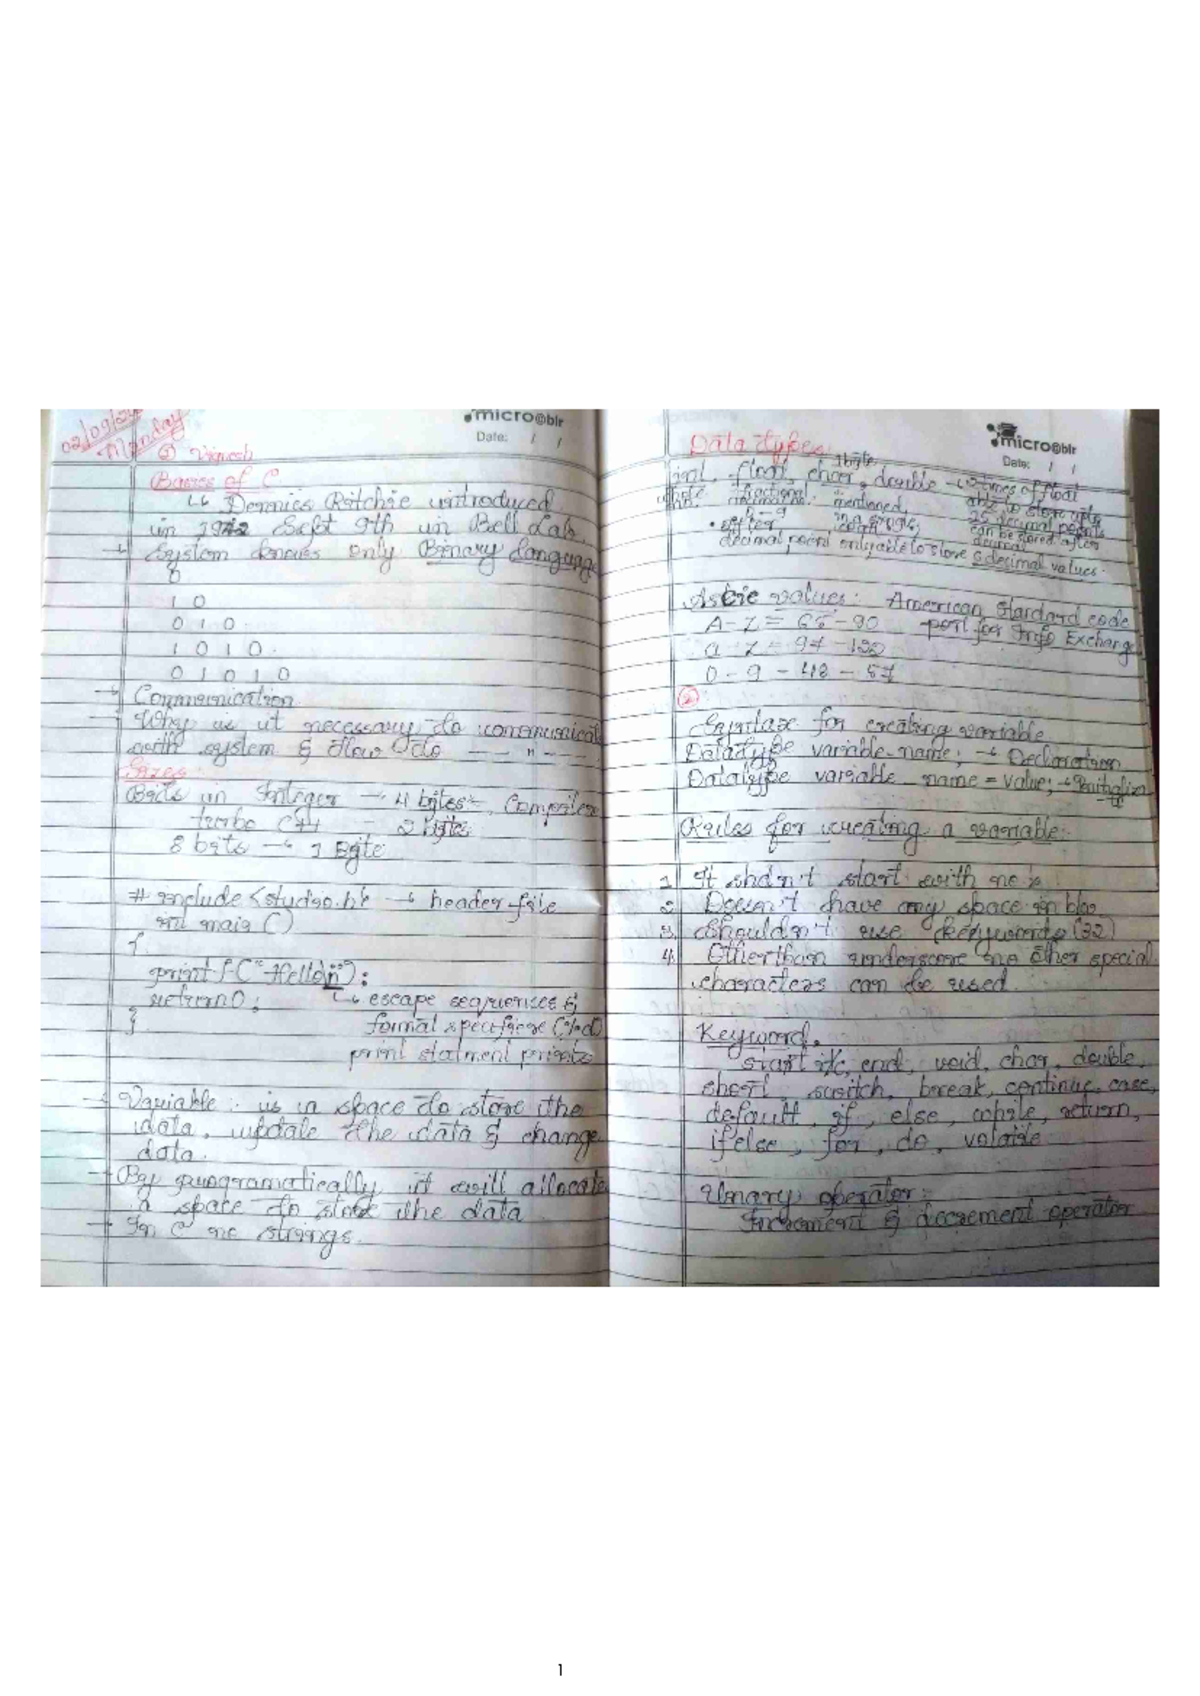 02/09/24
Monday
micro@blr
Date: / /
① Vignesh
Basics of C
↳ Dennics Ritchie introduced
in 1972 Sept 9th in Bell Lab.
→ System knows only Binary language
0
1 0
0 1 0
1 0 1 0.
0 1 0 1 0
→ Communication
→ Why is it necessary to communicat
with system & How to — " — —
Sizes:
Bits in Integer → 4 bytes = Compiler
turbo C++ – 2 byte
8 bits → 1 Byte
# include <studio.h> → header file
int main ()
{
printf ("Hello\n");
return 0;
↳ escape sequences &
} format specifiere (%d)
print statment prints
→ Variable : is a space to store the
data, update the data & change
data.
→ By programatically it will allocate
a space to store the data
→ In C no strings.
micro@blr
Date: / /
Data types
int, float, char, double → 2 times of float
1 byte
whole fractional mentioned
decimal no. in a single
0 - 9
• after
able to store upto
decimal points
can be stored after
decimal
decimal point only able to store 6 decimal values.
Ascie values: American Standard code
A-Z = 65-90 for Info Exchange
a - z = 97 -122
0 - 9 - 48 - 57
②
Syntax for creating variable
Datatype variable-name; → Declaration
Datatype variable name = value; → Initializa
Rules for creating a variable:
1. It shdn't start with no's
2. Doesn't have any space in b/w
3. Shouldn't use keywords (32)
4. Otherthan underscore no other special
characters can be used.
Keyword.
start, end, void, char, double,
short, switch, break, continue, case,
default, if, else, while, return,
ifelse, for, do, volatile
Unary operator:
Increment & decrement operator
1